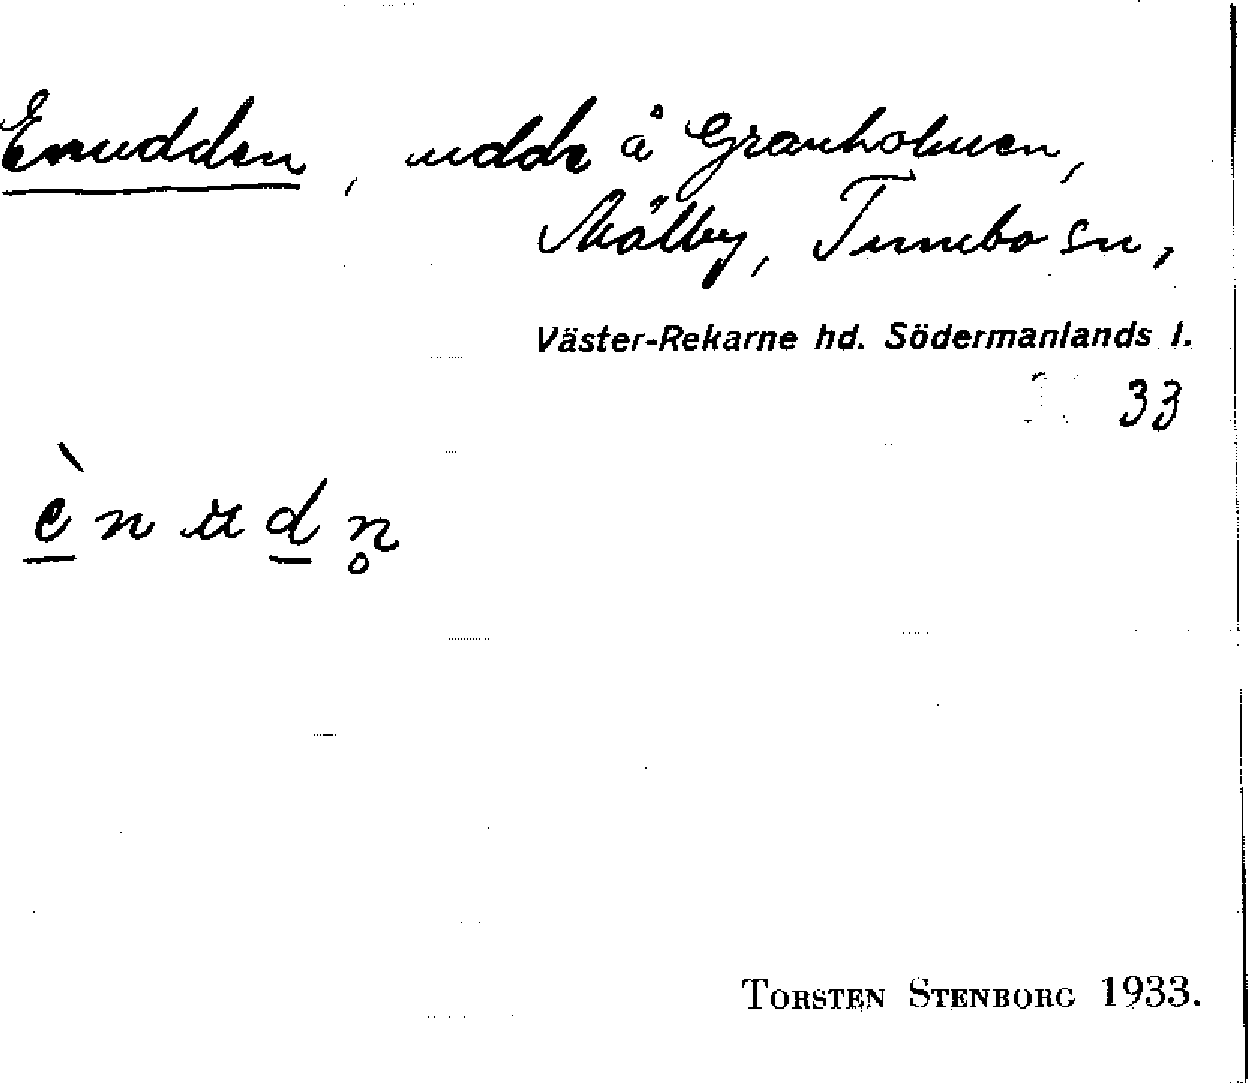 Enudden, udde å Granholmen,
Mälby, Tumbo sn,
Väster-Rekarne hd. Södermanlands l.
33
è n u d n̥
TORSTEN STENBORG 1933.